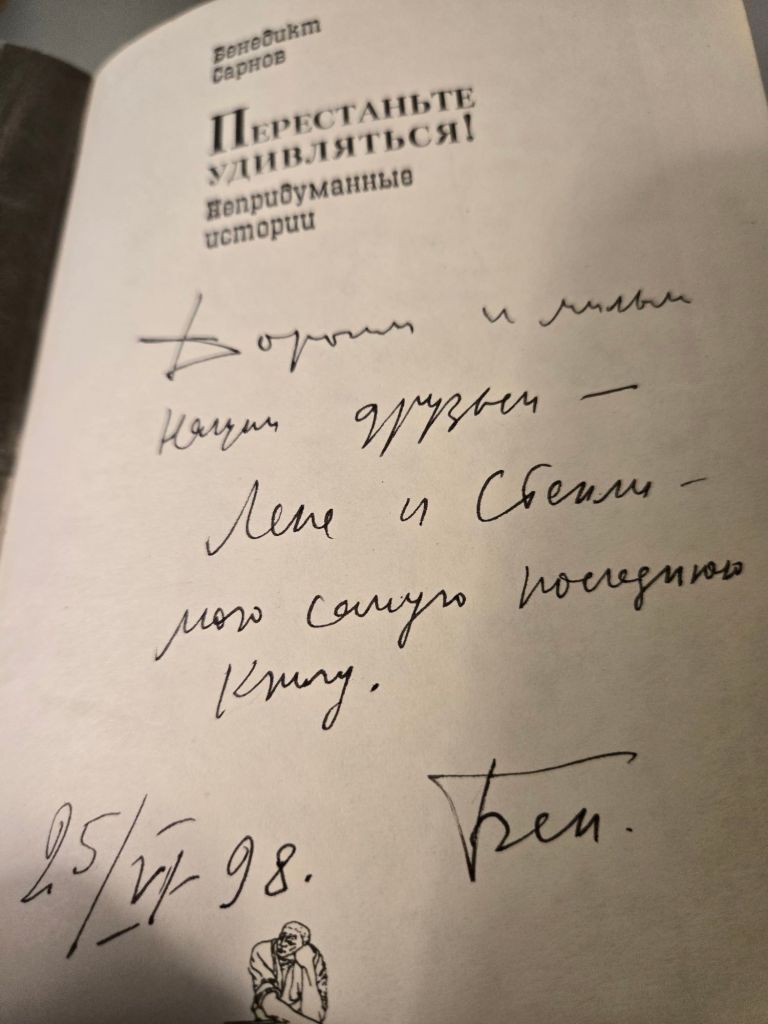 Бенедикт
Сарнов
Перестаньте
удивляться!
Непридуманные
истории
Дорогим и милым
нашим друзьям –
Лене и Стенли –
мою самую последнюю
книгу.
Бен.
25/VI 98.